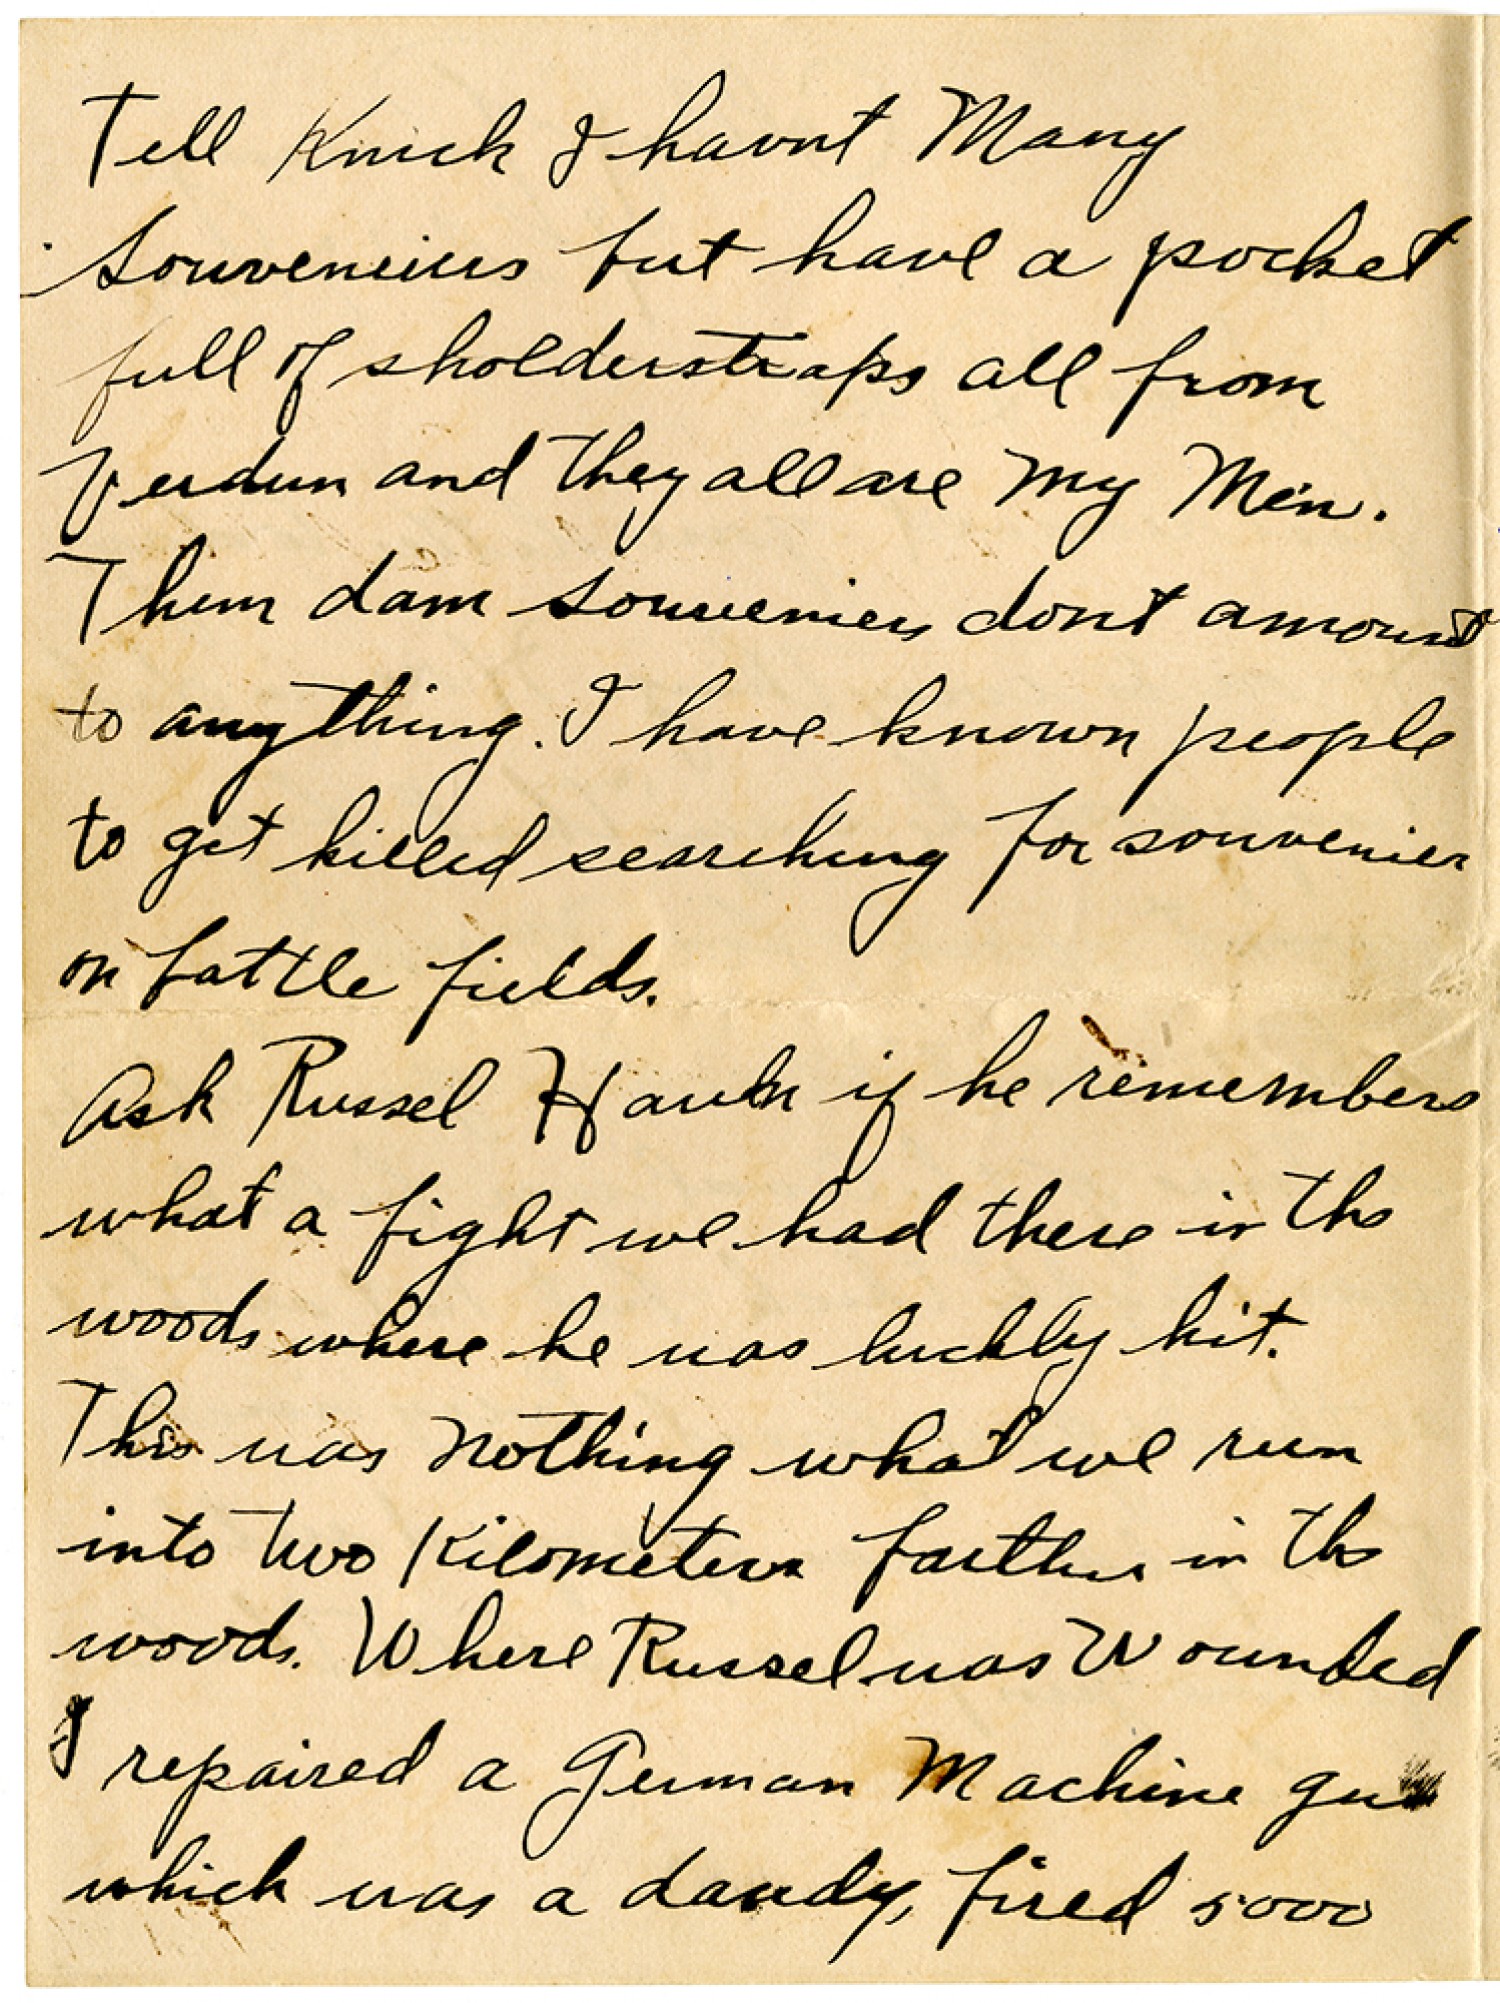 Tell Knick I havnt Many
souveniers but have a pocket
full of sholderstraps all from
Verdun and they all are My Men.
Them dam souveniers dont amount
to anything. I have known people
to get killed searching for souvenier
on battle fields.
Ask Russel if he remembers
what a fight we had there in the
woods where he was luckly hit.
This was nothing what we run
into two Kilometers farther in the
woods. Where Russel was Wounded
I repaired a German Machine gun
which was a dandy, fired 5000